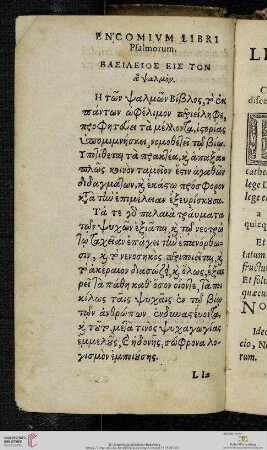 ENCOMIVM LIBRI
Psalmorum.
ΒΑΣΙΛΕΙΟΣ ΕΙΣ ΤΟΝ
α ψαλμόν.
Η τῶν ψαλμῶν βίβλος, τὸ ἐκ
πάντων ὠφέλιμον περιείληφε,
προφητεύει τὰ μέλλοντα, ἱστορίας
ὑπομιμνήσκει, νομοθετεῖ τῷ βίῳ.
Υποτίθεται τὰ πρακτέα, κ ἁπαξα-
πλῶς κοινὸν ταμεῖον ἐστιν ἀγαθῶν
διδαγμάτων, κ ἑκάστῳ πρόσφορον
κτ τὴν ἐπιμέλειαν ἐξευρίσκουσα.
Τά τε γδ παλαιὰ τραύματα
τῶν ψυχῶν ἐξιᾶται, κ τῷ νεοτρώ-
τῳ ταχεῖαν ἐπάγει τὴν ἐπανόρθω-
σιν, κ τὸ νενοσηκὸς περιποιεῖται, κ
τὸ ἀκέραιον διασώζει, κ ὅλως, ἐξαι-
ρεῖ τὰ πάθη καθ' ὅσον οἷόν τε, τὰ ποι-
κίλως ταῖς ψυχαῖς ἐν τῷ βίῳ
τῶν ἀνθρώπων ἐνδυναστεύοντα,
κ τοῦτο, μετά τινος ψυχαγωγίας
ἐμμελοῦς, κ ἡδονῆς, σώφρονα λο-
γισμὸν ἐμποιούσης.